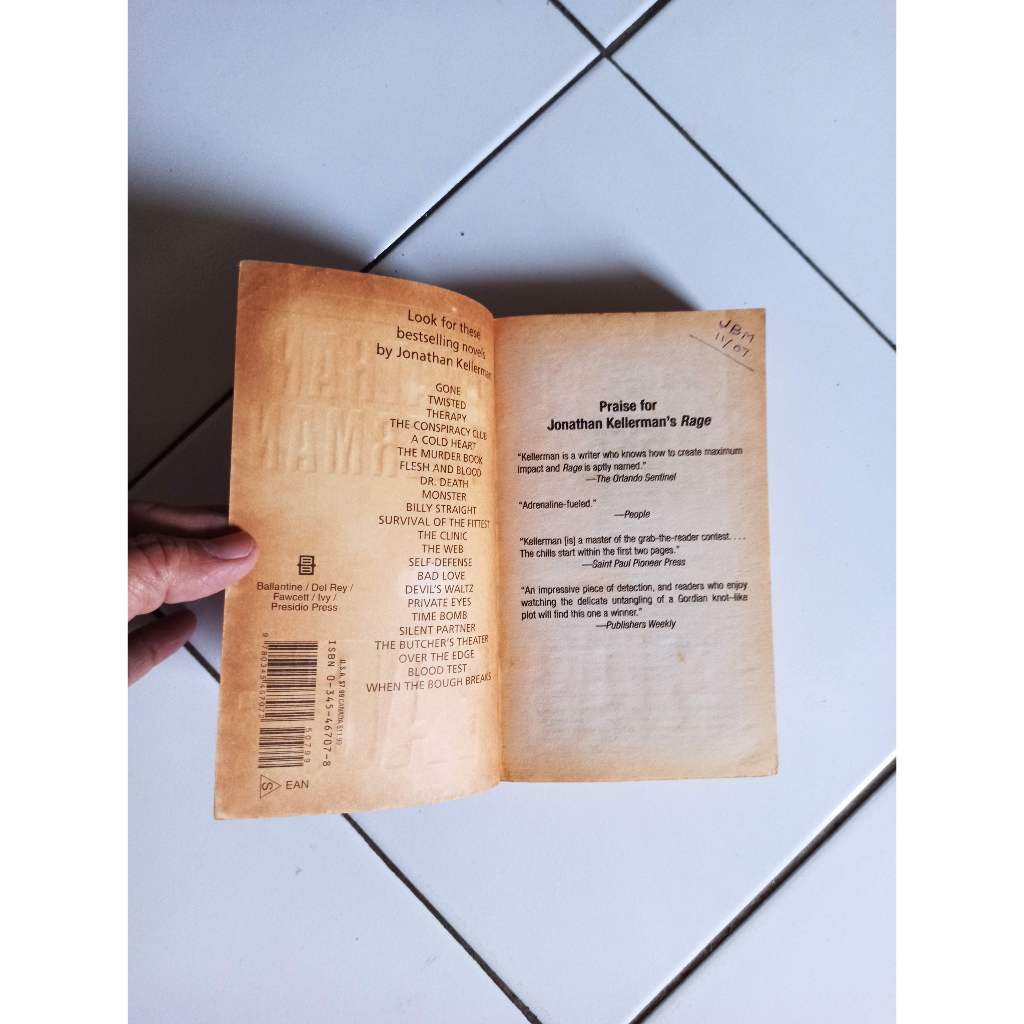 Look for these
bestselling novels
by Jonathan Kellerman
GONE
TWISTED
THERAPY
THE CONSPIRACY CLUB
A COLD HEART
THE MURDER BOOK
FLESH AND BLOOD
DR. DEATH
MONSTER
BILLY STRAIGHT
SURVIVAL OF THE FITTEST
THE CLINIC
THE WEB
SELF-DEFENSE
BAD LOVE
DEVIL'S WALTZ
PRIVATE EYES
TIME BOMB
SILENT PARTNER
THE BUTCHER'S THEATER
OVER THE EDGE
BLOOD TEST
WHEN THE BOUGH BREAKS
Ballantine / Del Rey /
Fawcett / Ivy /
Presidio Press
U.S.A. $7.99 CANADA $11.99
ISBN 0-345-46707-8
9 780345 467072
50799
S EAN
JBM
11/07
Praise for
Jonathan Kellerman's Rage
"Kellerman is a writer who knows how to create maximum
impact and Rage is aptly named."
—The Orlando Sentinel
"Adrenaline-fueled."
—People
"Kellerman [is] a master of the grab-the-reader contest. . . .
The chills start within the first two pages."
—Saint Paul Pioneer Press
"An impressive piece of detection, and readers who enjoy
watching the delicate untangling of a Gordian knot–like
plot will find this one a winner."
—Publishers Weekly